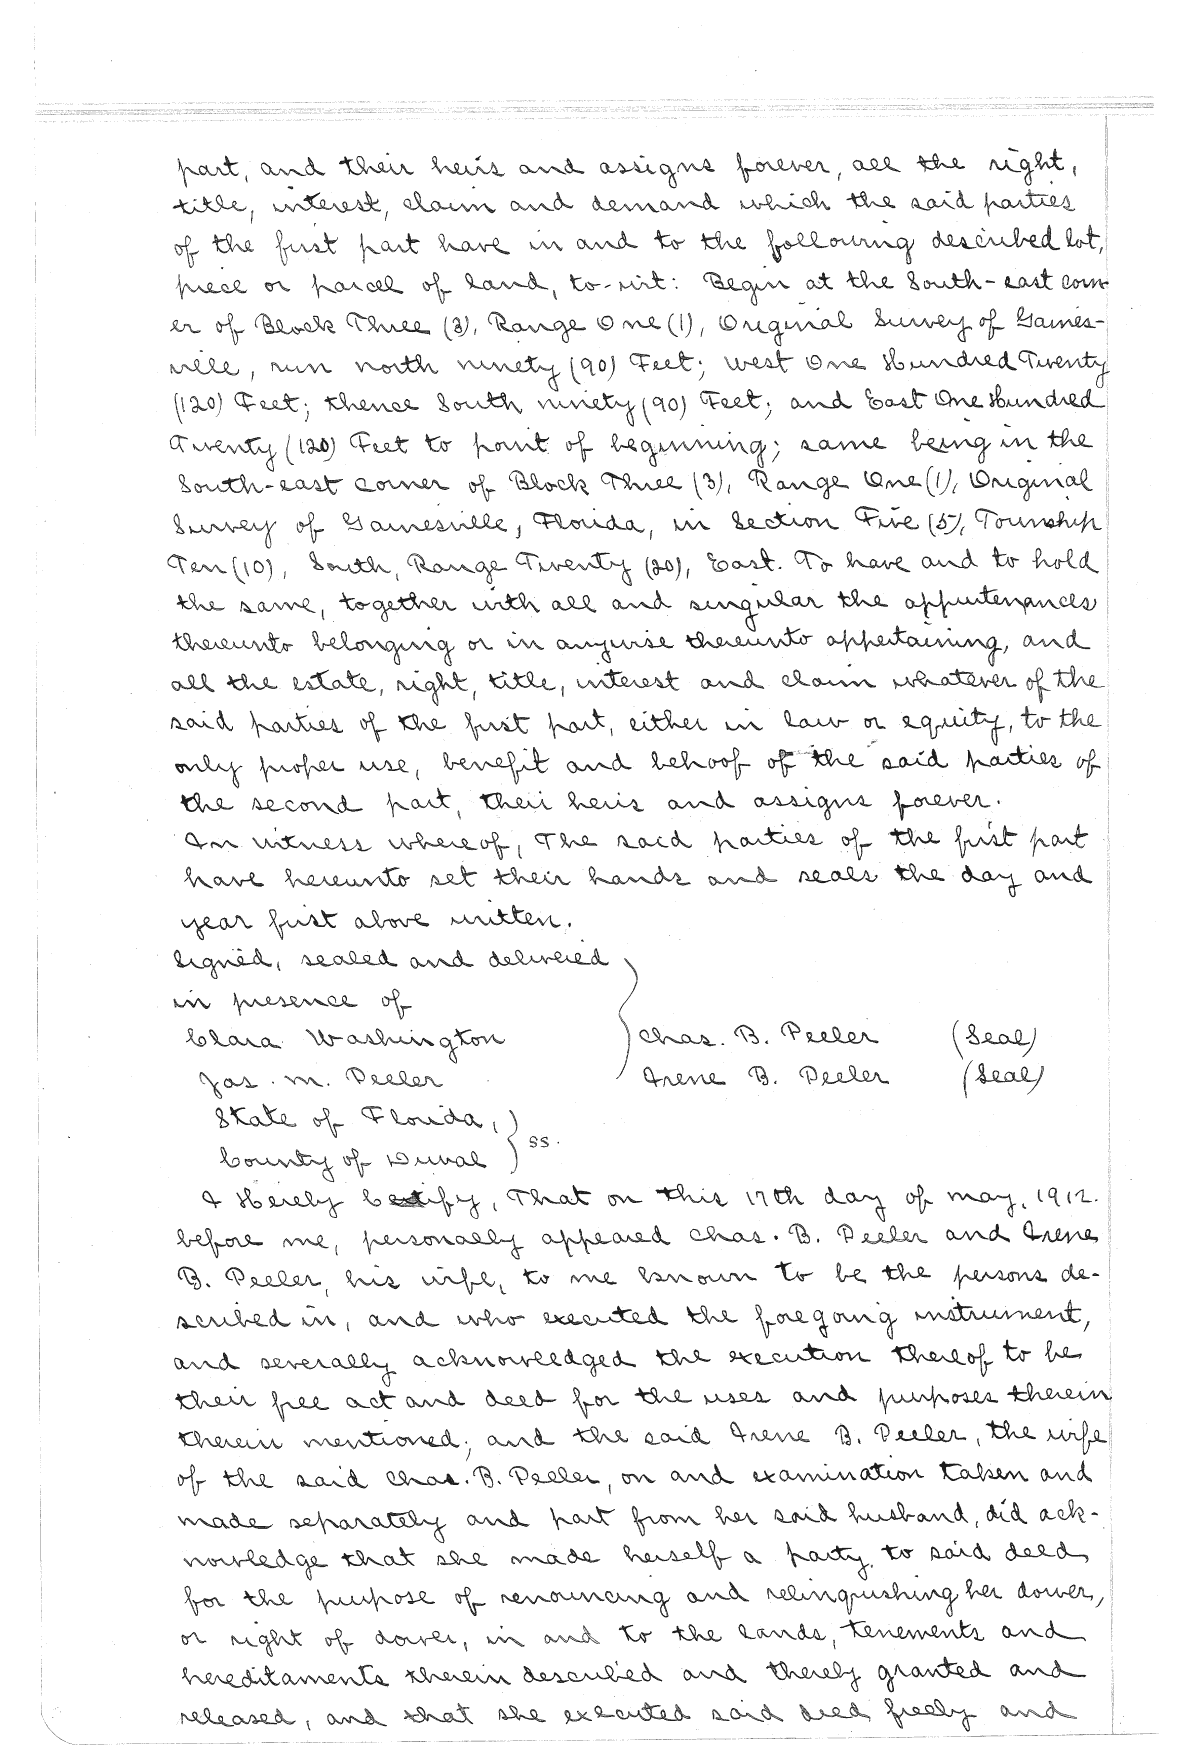 part, and their heirs and assigns forever, all the right,
title, interest, claim and demand which the said parties
of the first part have in and to the following described lot,
piece or parcel of land, to-wit: Begin at the South-east corn
er of Block Three (3), Range One (1), Original Survey of Gaines-
ville, run north ninety (90) Feet; west One Hundred Twenty
(120) Feet; thence South ninety (90) Feet; and East One Hundred
Twenty (120) Feet to point of beginning; same being in the
South-east corner of Block Three (3), Range One (1), Original
Survey of Gainesville, Florida, in Section Five (5), Township
Ten (10), South, Range Twenty (20), East. To have and to hold
the same, together with all and singular the appurtenances
thereunto belonging or in anywise thereunto appertaining, and
all the estate, right, title, interest and claim whatever of the
said parties of the first part, either in law or equity, to the
only proper use, benefit and behoof of the said parties of
the second part, their heirs and assigns forever.
In witness whereof, The said parties of the first part
have hereunto set their hands and seals the day and
year first above written.
Signed, sealed and delivered
in presence of
Clara Washington Chas. B. Peeler (Seal)
Jas. M. Peeler Irene B. Peeler (Seal)
State of Florida,
ss.
County of Duval
I Hereby Certify, That on this 17th day of May, 1912.
before me, personally appeared Chas. B. Peeler and Irene
B. Peeler, his wife, to me known to be the persons de-
scribed in, and who executed the foregoing instrument,
and severally acknowledged the execution thereof to be
their free act and deed for the uses and purposes therein
therein mentioned; and the said Irene B. Peeler, the wife
of the said Chas. B. Peeler, on and examination taken and
made separately and part from her said husband, did ack-
nowledge that she made herself a party to said deed
for the purpose of renouncing and relinquishing her dower,
or right of dower, in and to the lands, tenements and
hereditaments therein described and thereby granted and
released, and that she executed said deed freely and